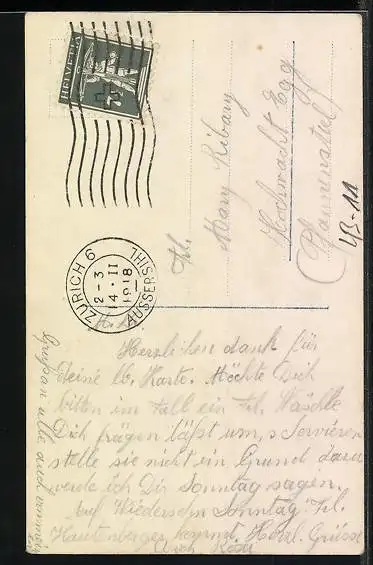 HELVETIA
7½
ZÜRICH 6
2-3
14.II
1918
AUSSERSIHL
Frl.
Mary Ribary
Hochwacht Egg
(Pfannenstiel)
43-11
Herzlichen dank für
deine lb. Karte. Möchte Dich
bitten im fall ein Frl. Wäschle
Dich frägen läßt um, s Servieren
stelle sie nicht ein Grund dazu
werde ich Dir Sonntag sagen.
Auf Wiedersehn Sonntag. Frl.
Hautenberger kommt. Herzl. Grüsse
alle auch